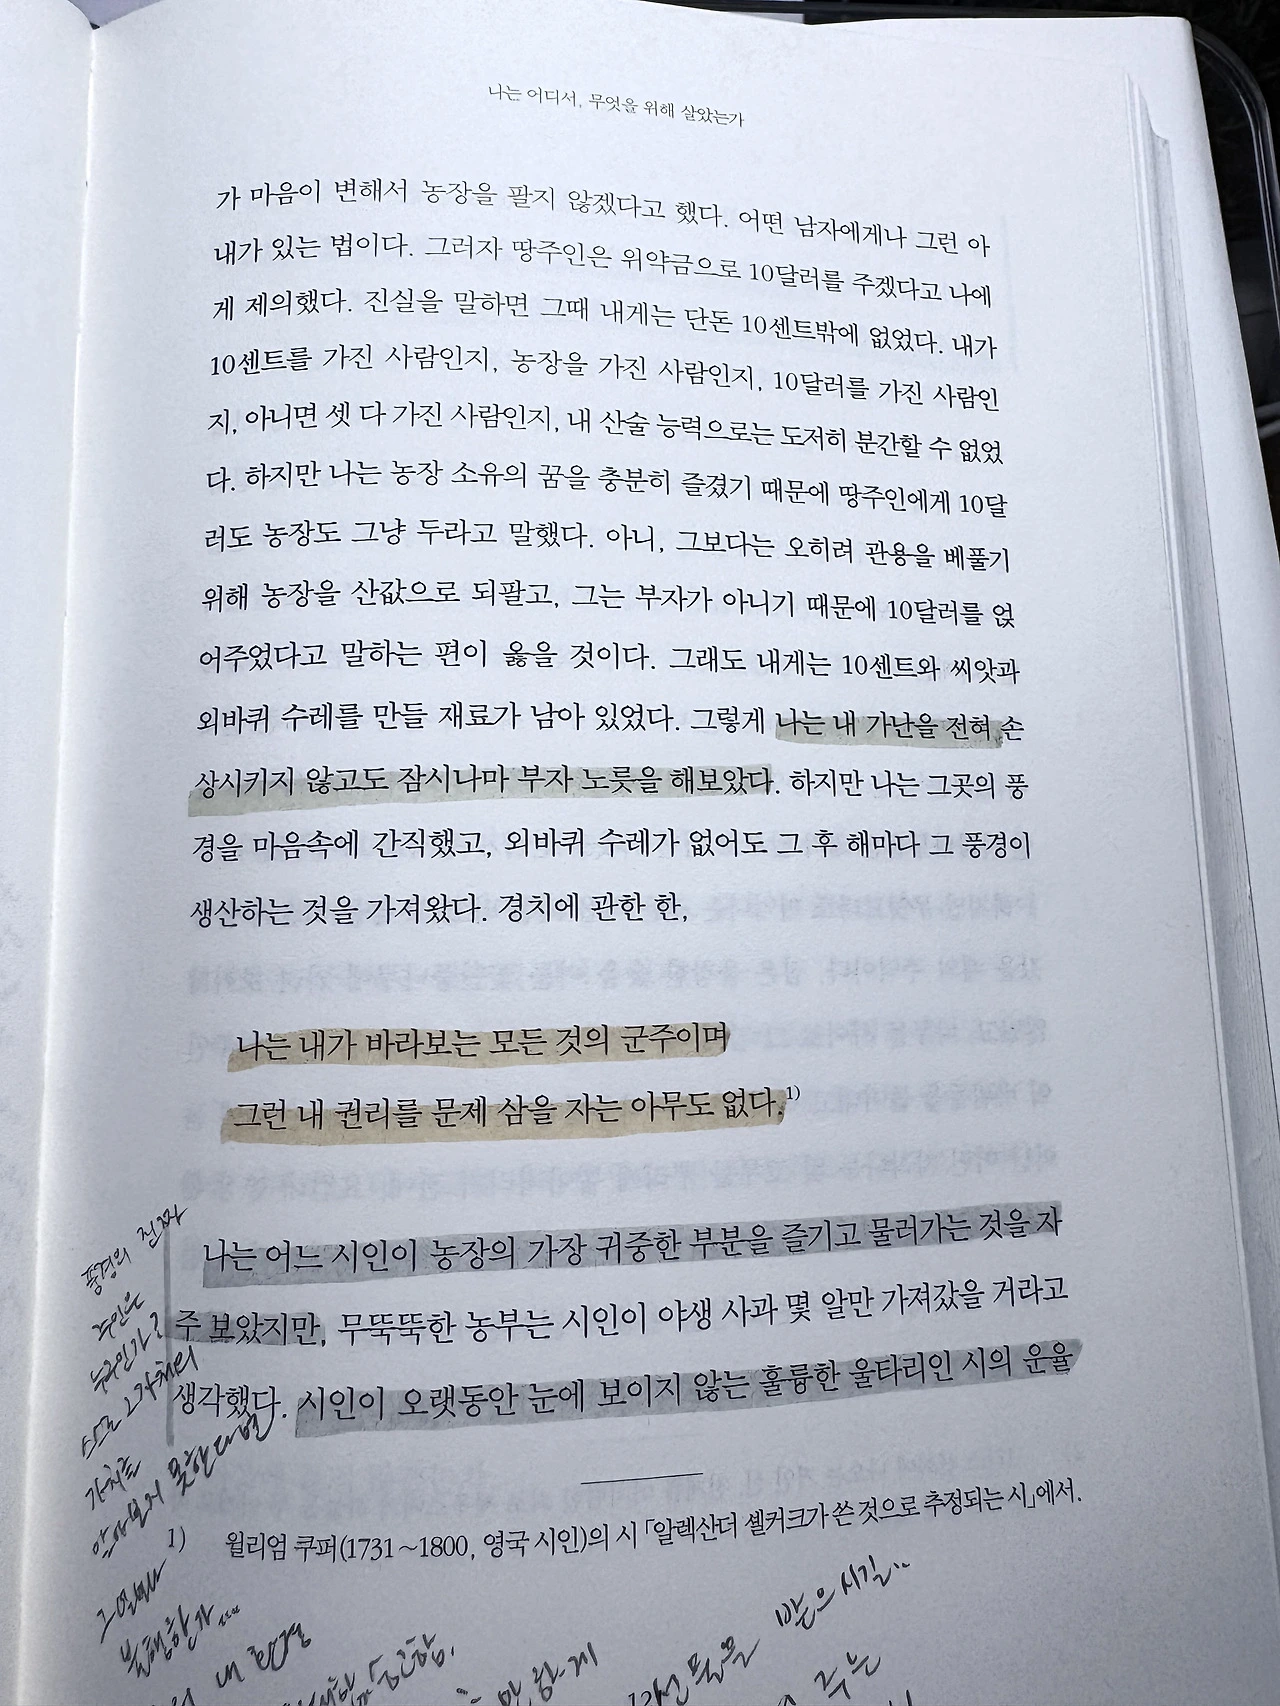 나는 어디서, 무엇을 위해 살았는가
가 마음이 변해서 농장을 팔지 않겠다고 했다. 어떤 남자에게나 그런 아
내가 있는 법이다. 그러자 땅주인은 위약금으로 10달러를 주겠다고 나에
게 제의했다. 진실을 말하면 그때 내게는 단돈 10센트밖에 없었다. 내가
10센트를 가진 사람인지, 농장을 가진 사람인지, 10달러를 가진 사람인
지, 아니면 셋 다 가진 사람인지, 내 산술 능력으로는 도저히 분간할 수 없었
다. 하지만 나는 농장 소유의 꿈을 충분히 즐겼기 때문에 땅주인에게 10달
러도 농장도 그냥 두라고 말했다. 아니, 그보다는 오히려 관용을 베풀기
위해 농장을 산값으로 되팔고, 그는 부자가 아니기 때문에 10달러를 얹
어주었다고 말하는 편이 옳을 것이다. 그래도 내게는 10센트와 씨앗과
외바퀴 수레를 만들 재료가 남아 있었다. 그렇게 나는 내 가난을 전혀 손
상시키지 않고도 잠시나마 부자 노릇을 해보았다. 하지만 나는 그곳의 풍
경을 마음속에 간직했고, 외바퀴 수레가 없어도 그 후 해마다 그 풍경이
생산하는 것을 가져왔다. 경치에 관한 한,
나는 내가 바라보는 모든 것의 군주이며
그런 내 권리를 문제 삼을 자는 아무도 없다.1)
나는 어느 시인이 농장의 가장 귀중한 부분을 즐기고 물러가는 것을 자
주 보았지만, 무뚝뚝한 농부는 시인이 야생 사과 몇 알만 가져갔을 거라고
생각했다. 시인이 오랫동안 눈에 보이지 않는 훌륭한 울타리인 시의 운율
1) 윌리엄 쿠퍼(1731~1800, 영국 시인)의 시 「알렉산더 셀커크가 쓴 것으로 추정되는 시」에서.
풍경의 진짜
주인은
누구인가?
스스로 그 가치의
가치를
알아보지 못한다면
그 얼마나
불행한가...
내 환경
받으시길..